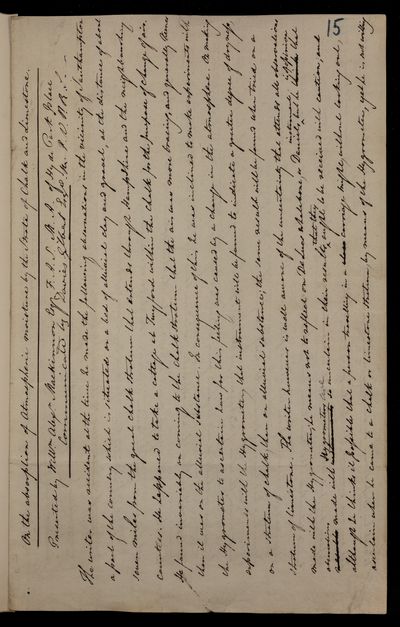 15
On the absorption of Atmospheric moisture by the Strata of Chalk and Limestone.
Presented by Willm. Alexr. Mackinnon Esqr. F.R.S. M.A. of Hyde Park Place
Communicated by Davies Gilbert Esqr. V.P.R.S.
The writer was resident at the time he made the following observations in the vicinity of Southampton
a part of the country which is situated on a bed of alluvial clay and gravel, at the distance of about
seven miles from the great chalk stratum that extends through Hampshire and the neighbouring
counties. He happened to take a cottage at Twyford within the chalk for the purpose of change of air,
He found invariably on coming to the chalk stratum that the air was more bracing and generally keener
than it was on the alluvial substance. In consequence of this he was inclined to make experiments with
the Hygrometer to ascertain how far this feeling was caused by a change in the atmosphere. On making
experiments with the Hygrometer, that instrument will be found to indicate a greater degree of dryness
on a stratum of chalk than on alluvial substances; the same result will be found when tried on a
stratum of limestone. The writer however is well aware of the uncertainty that attends all observations
made with the Hygrometer, he means not to reflect on De Lucs whalebone, or Daniels instruments, but he is of opinion that
observations made with Hygrometers are uncertain in their results, that they ought to be received with caution, and
although he thinks it possible that a person travelling in a close carriage might, without looking out,
ascertain when he came to a chalk or limestone stratum by means of the Hygrometer, yet he is not willing